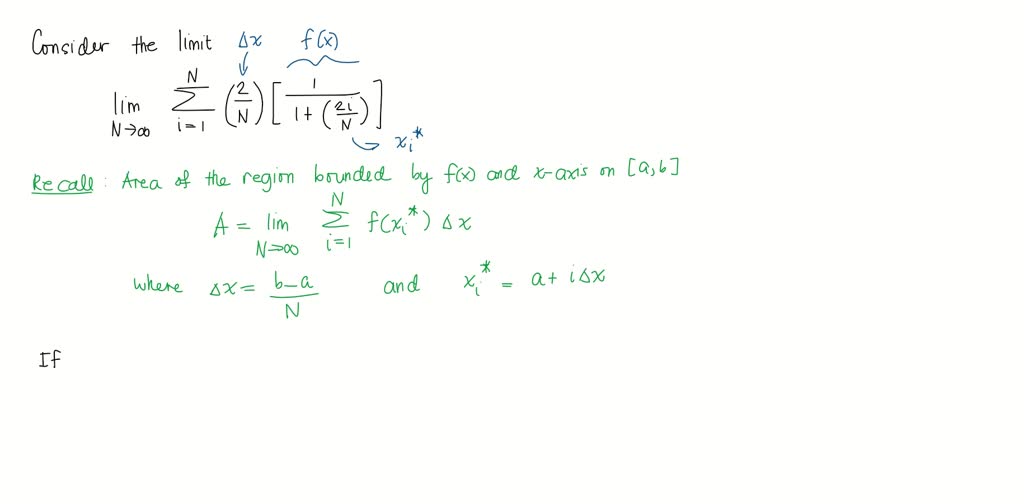 Consider the limit Δx f(x)
lim N→∞ N Σ i=1 (2/N) [ 1 / 1+(2i/N) ]
xᵢ*
Recall: Area of the region bounded by f(x) and x-axis on [a,b]
A = lim N→∞ N Σ i=1 f(xᵢ*) Δx
where Δx = b-a / N and xᵢ* = a + iΔx
If